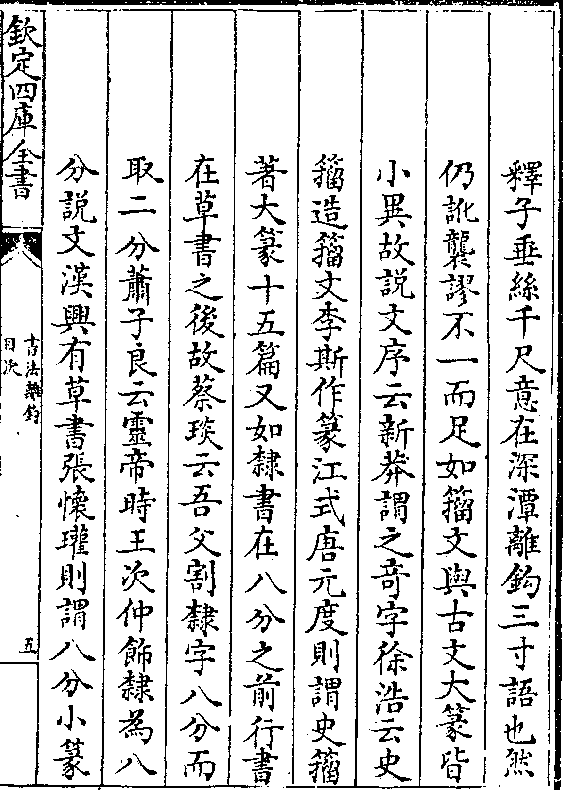 釋子垂絲千尺意在深潭離鈎三寸語也然
仍訛襲謬不一而足如籀文與古文大篆皆
小異故説文序云新莽謂之竒字徐浩云史
籀造籀文李斯作篆江式唐元度則謂史籀
著大篆十五篇又如隸書在八分之前行書
在草書之後故蔡琰云吾父割隸字八分而
取二分蕭子良云靈帝時王次仲飾隸為八
分説文漢興有草書張懷瓘則謂八分小篆
欽定四庫全書
書法離鈎
目次
五